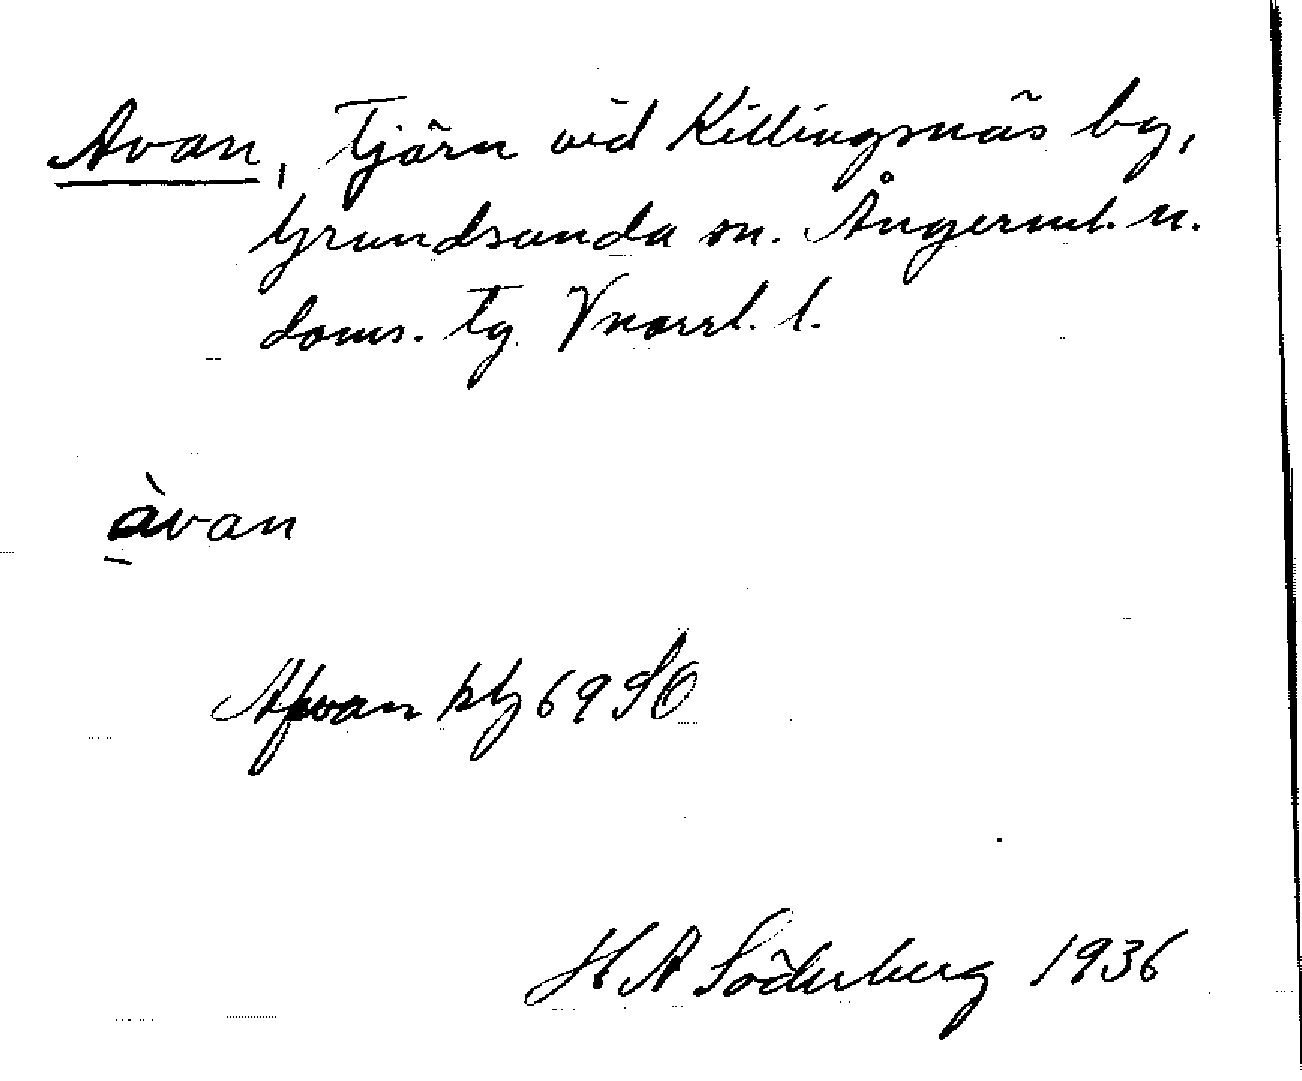 Avan, Tjärn vid Killingsnäs by,
Grundsunda sn. Ångerml. n.
doms. tg. Vnorrl. l.
àvan
Afvan kbl 69 SO
H A Söderberg 1936